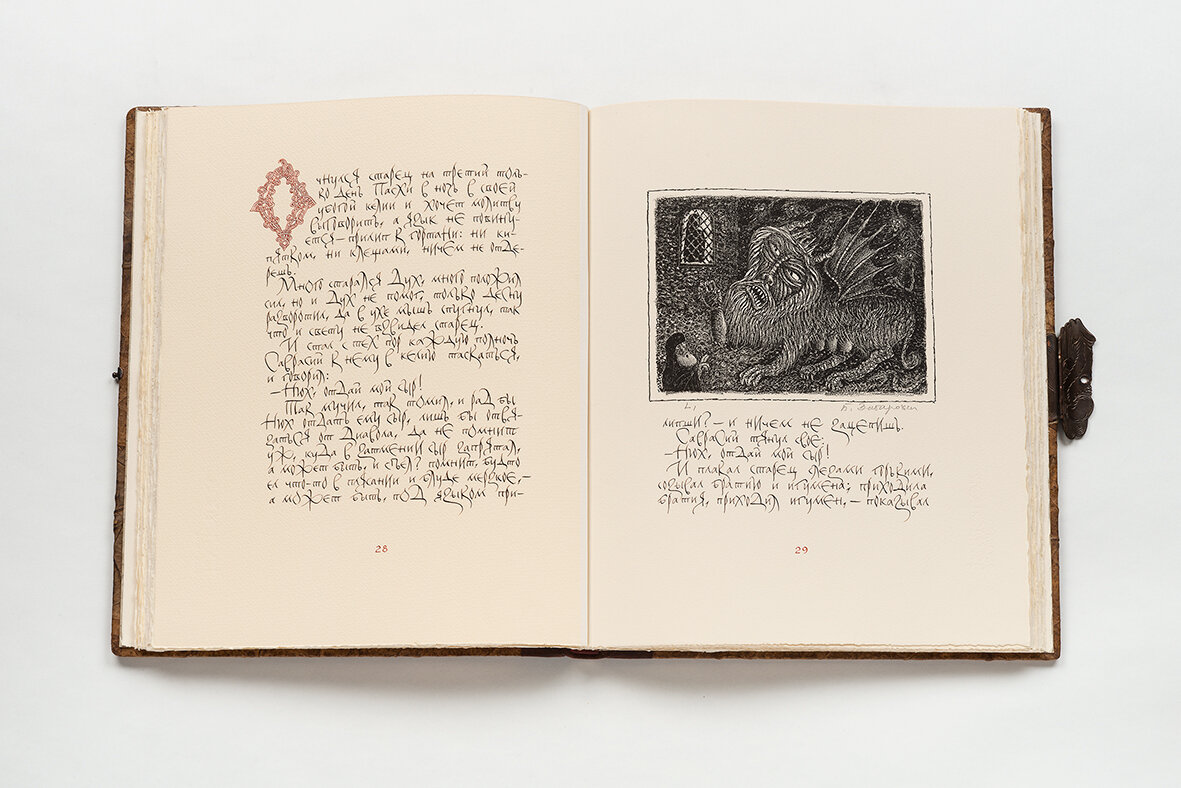 Очнулся старец на третий толь-
ко день Пасхи в ночь в своей
убогой келии и хочет молитву
выговорить, а язык не повину-
ется — прилип к гортани: ни ки-
пятком, ни клещами, ничем не отде-
решь.
Много старался Дух, много положил
сил, но и Дух не помог, только десну
разворотил, да в ухе мышь спугнул, так
что и свету не взвидел старец.
И стал с тех пор каждую полночь
Саврасий к нему в келию таскаться,
и говорил:
— Нюх, отдай мой сыр!
Так мучил, так томил, и рад бы
Нюх отдать ему сыр, лишь бы отвя-
заться от Диавола, да не помнит
уж, куда в затмении сыр запрятал,
а может быть, и съел? помнит, будто
ел что-то в плясании и блуде мерзкое, —
а может быть, под языком при-
28
липши? — и ничем не зацепишь.
Саврасий тянул свое:
— Нюх, отдай мой сыр!
И плакал старец слезами горькими,
созывал братию и игумена; приходила
братия, приходил игумен, — показывал
29